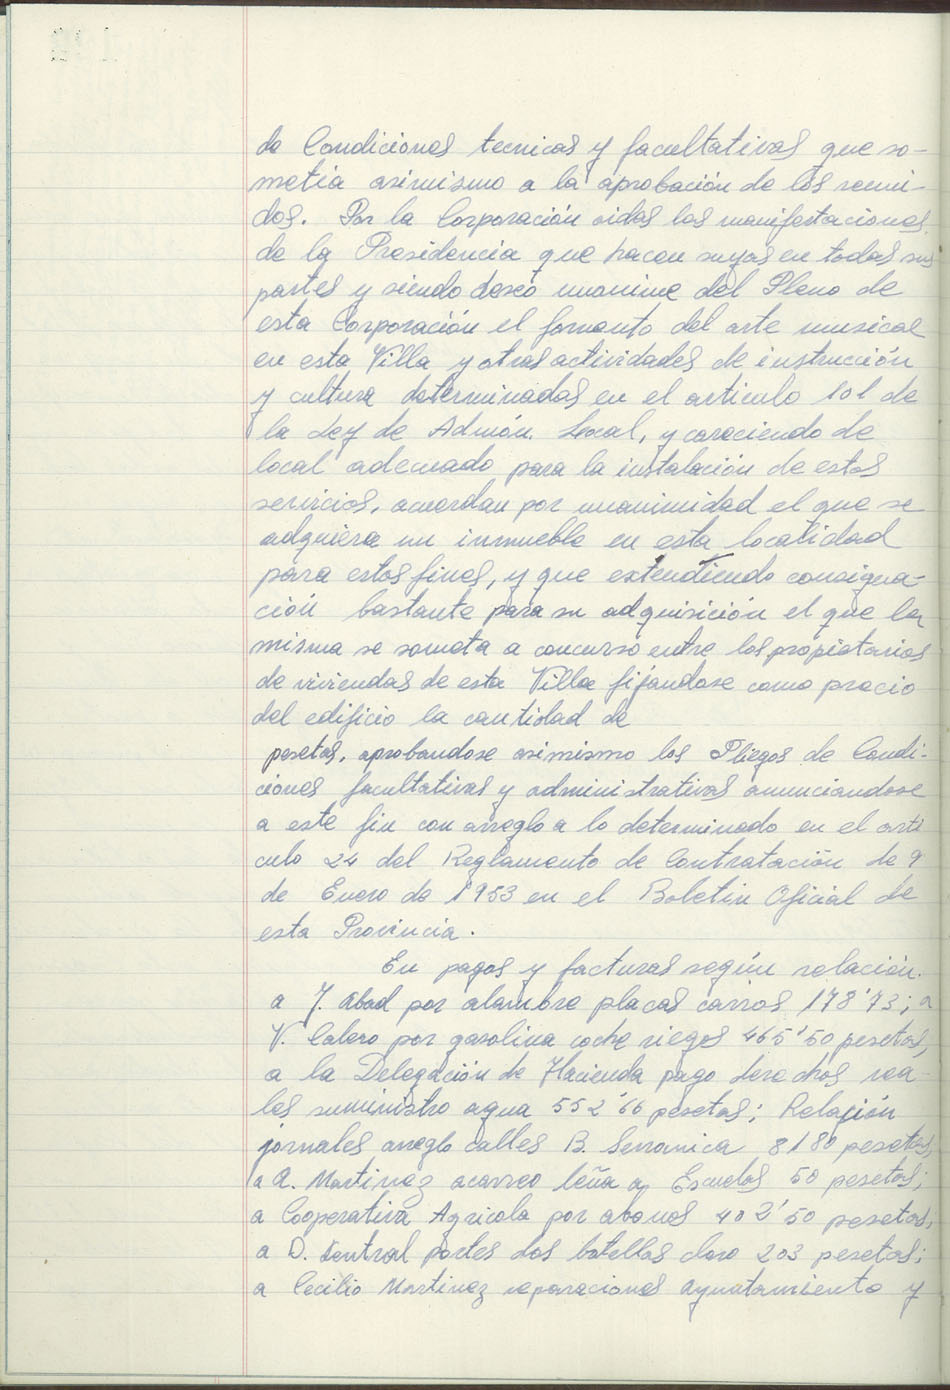 de Condiciones tecnicas y facultativas que so-
metia asimismo a la aprobación de los reuni-
dos. Por la Corporación oidas las manifestaciones
de la Presidencia que hacen suyas en todas sus
partes y siendo deseo unanime del Pleno de
esta Corporación el fomento del arte musical
en esta Villa y otras actividades de instrucción
y cultura determinadas en el articulo 101 de
la Ley de Admón. Local, y careciendo de
local adecuado para la instalación de estos
servicios, acuerdan por unanimidad el que se
adquiera un inmueble en esta localidad
para estos fines, y que extendiendo consigna-
ción bastante para su adquisición el que la
misma se someta a concurso entre los propietarios
de viviendas de esta Villa fijandose como precio
del edificio la cantidad de
pesetas, aprobandose asimismo los Pliegos de Condi-
ciones facultativas y administrativas anunciandose
a este fin con arreglo a lo determinado en el arti
culo 24 del Reglamento de Contratación de 9
de Enero de 1953 en el Boletin Oficial de
esta Provincia.
En pagos y facturas según relación.
a J. Abad por alambre placas carros 178'73; a
V. Calero por gasolina coche riegos 465'50 pesetas,
a la Delegación de Hacienda pago derechos rea-
les suministro agua 552'66 pesetas; Relación
jornales arreglo calles B. Serranica 8180 pesetas,
a A. Martinez acarreo leña a Escuelas 50 pesetas;
a Cooperativa Agricola por abonos 402'50 pesetas;
a D. portes dos botellas cloro 203 pesetas;
a Cecilio Martinez reparaciones ayuntamiento y